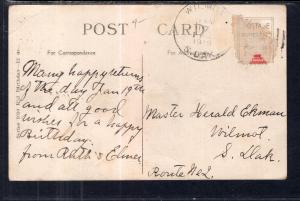 POST CARD
For Correspondence
WILMOT
S. DAK.
POSTAGE
Many happy returns
of the day Jan 19th
and all good
wishes for a happy
Birthday.
from Ruth & Elmer
Master Herald Ekman
Wilmot
S. Dak.
Route No 2.